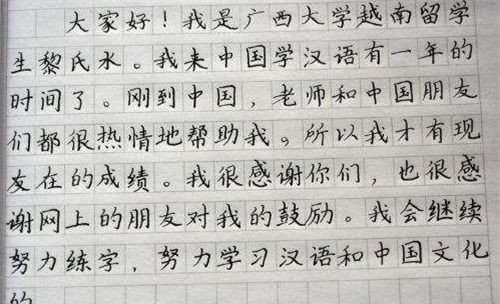 大家好！我是广西大学越南留学
生黎氏水。我来中国学汉语有一年的
时间了。刚到中国，老师和中国朋友
们都很热情地帮助我。所以我才有现
友在的成绩。我很感谢你们，也很感
谢网上的朋友对我的鼓励。我会继续
努力练字，努力学习汉语和中国文化
的